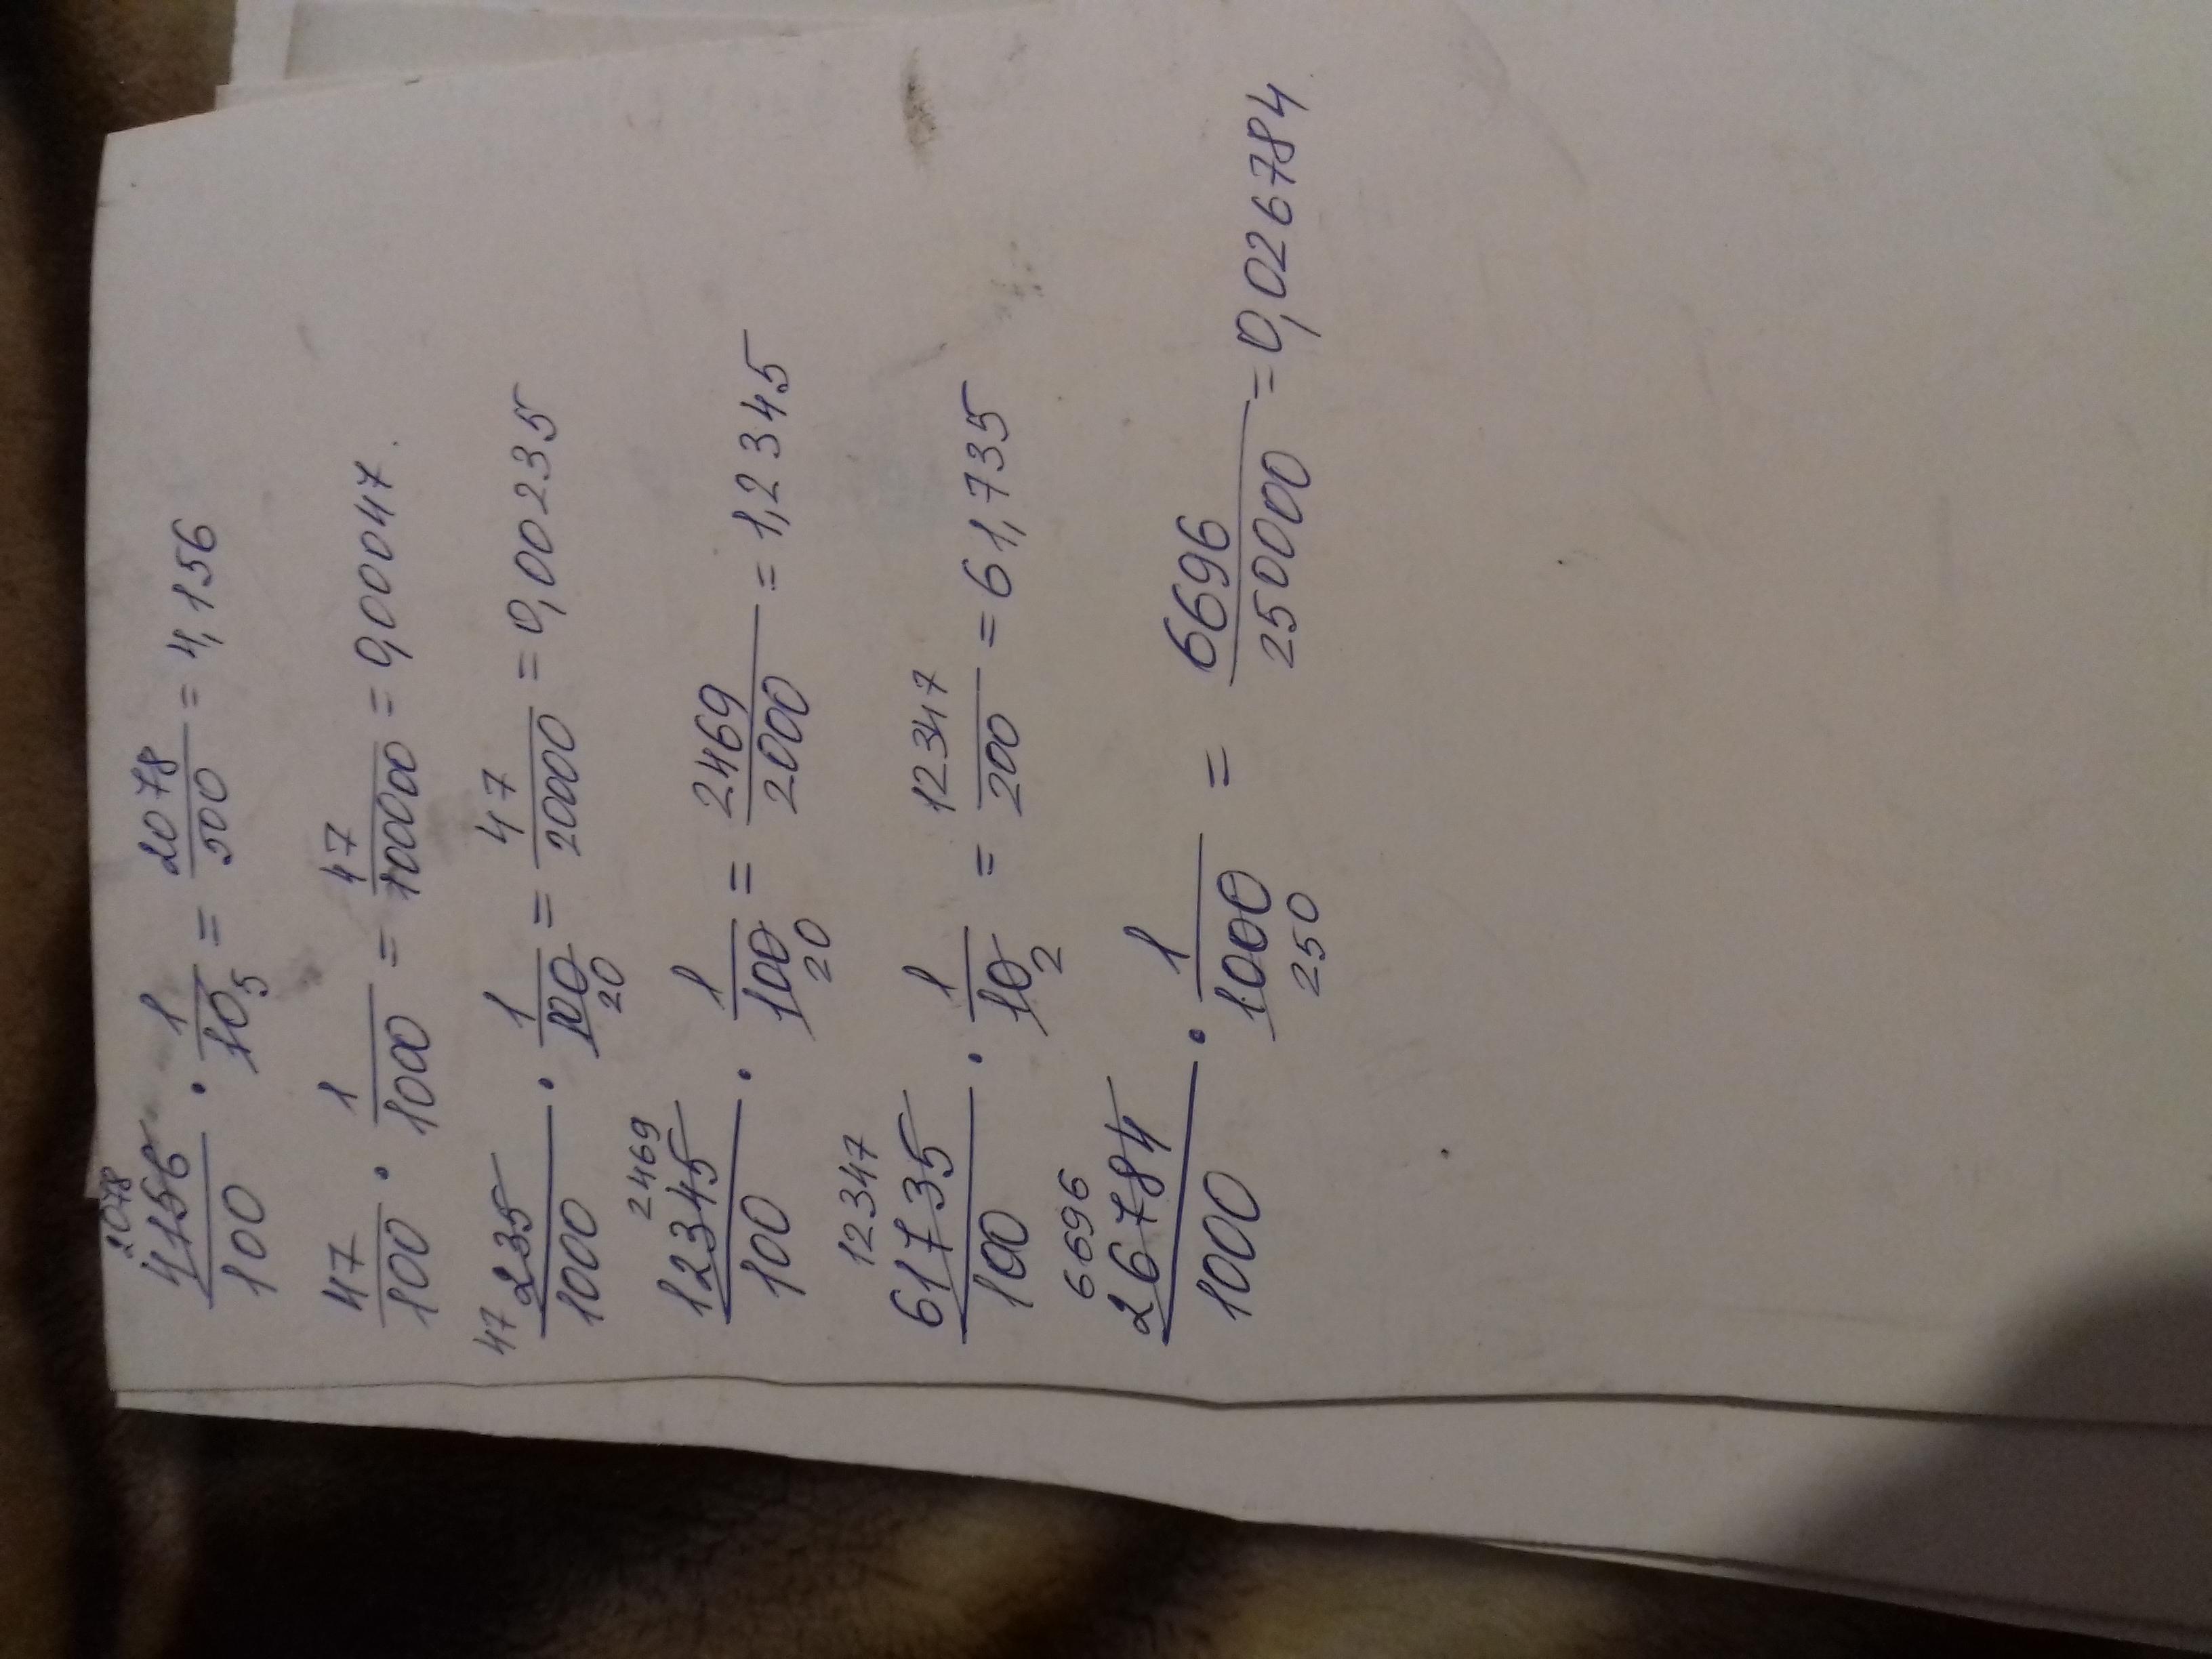 2078
4156/100 · 1/10 5 = 2078/500 = 4,156
47/100 · 1/1000 = 47/100000 = 0,00047.
47 235/1000 · 1/100 20 = 47/20000 = 0,00235
2469
12345/100 · 1/100 20 = 2469/2000 = 1,2345
12347
61735/100 · 1/10 2 = 12347/200 = 61,735
6696
26784/1000 · 1/1000 250 = 6696/250000 = 0,026784